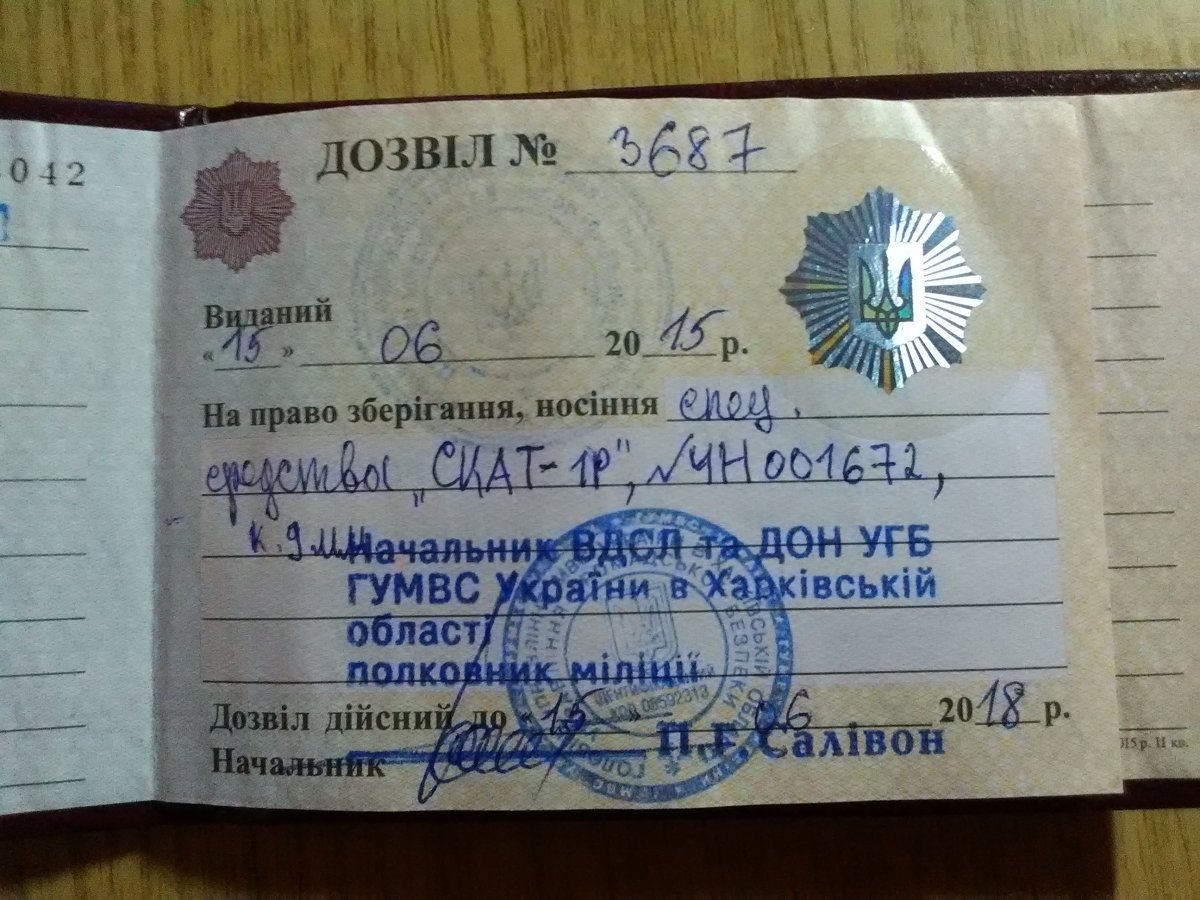 042
ДОЗВІЛ № 3687
Виданий
«15» 06 2015 р.
На право зберігання, носіння спец.
средства „СКАТ-1Р", №ЧН001672,
к. 9мм
Начальник ВДСЛ та ДОН УГБ
ГУМВС України в Харківській
області
полковник міліції
КОД 08592313
Дозвіл дійсний до «15» 06 2018 р.
Начальник П.Г. Салівон